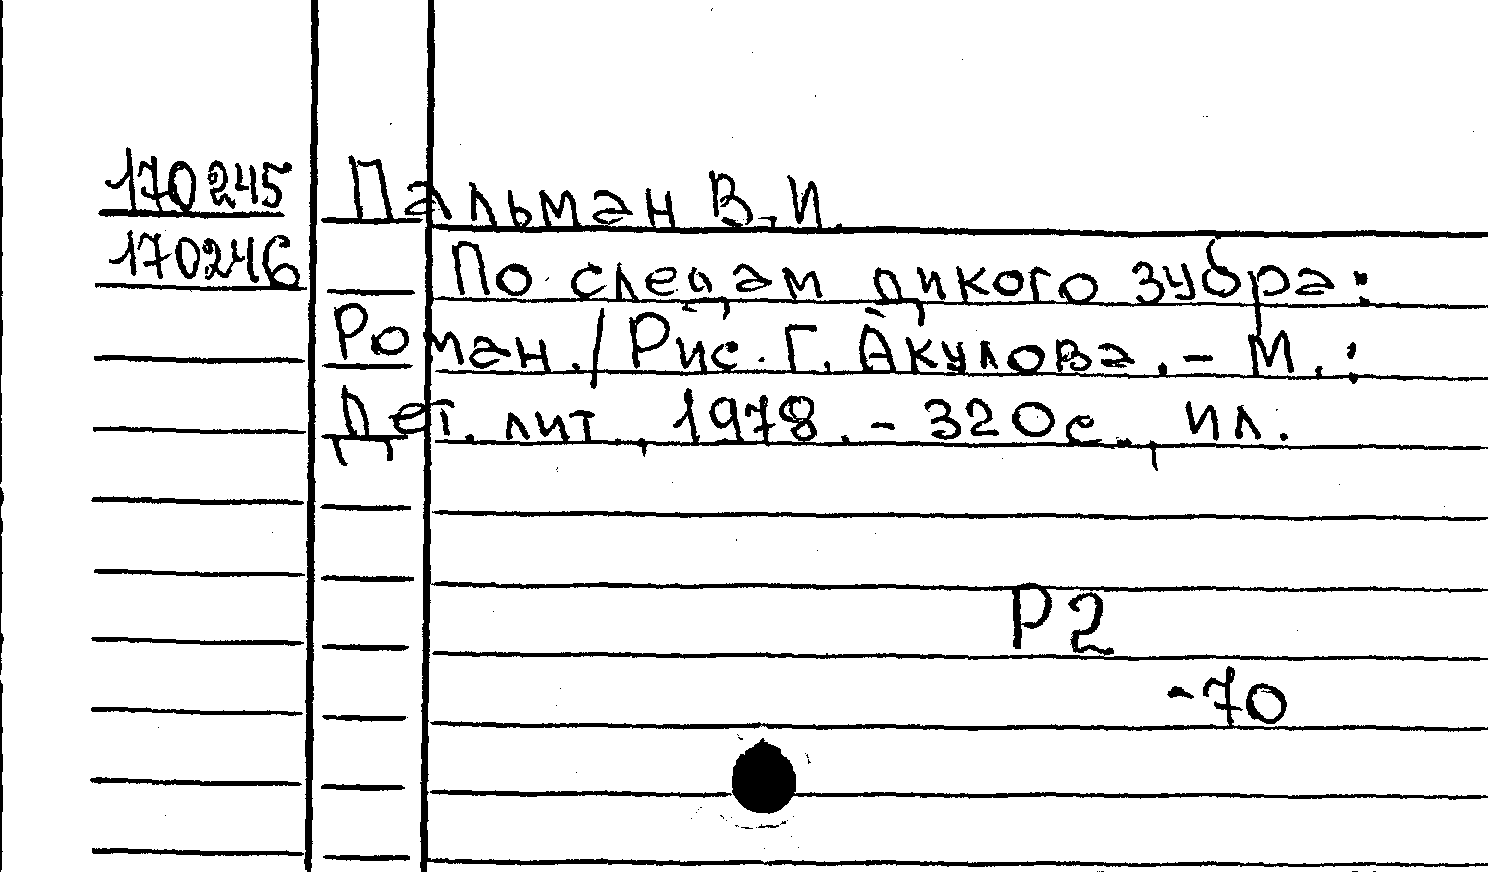 170245 Пальман В.И.
170246 По следам дикого зубра:
Роман./Рис. Г. Акулова. - М.:
Дет. лит., 1978. - 320с., ил.
Р2
-70